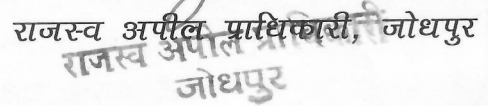 राजस्व अपील प्राधिकारी, जोधपुर
राजस्व अपील प्राधिकारी
जोधपुर